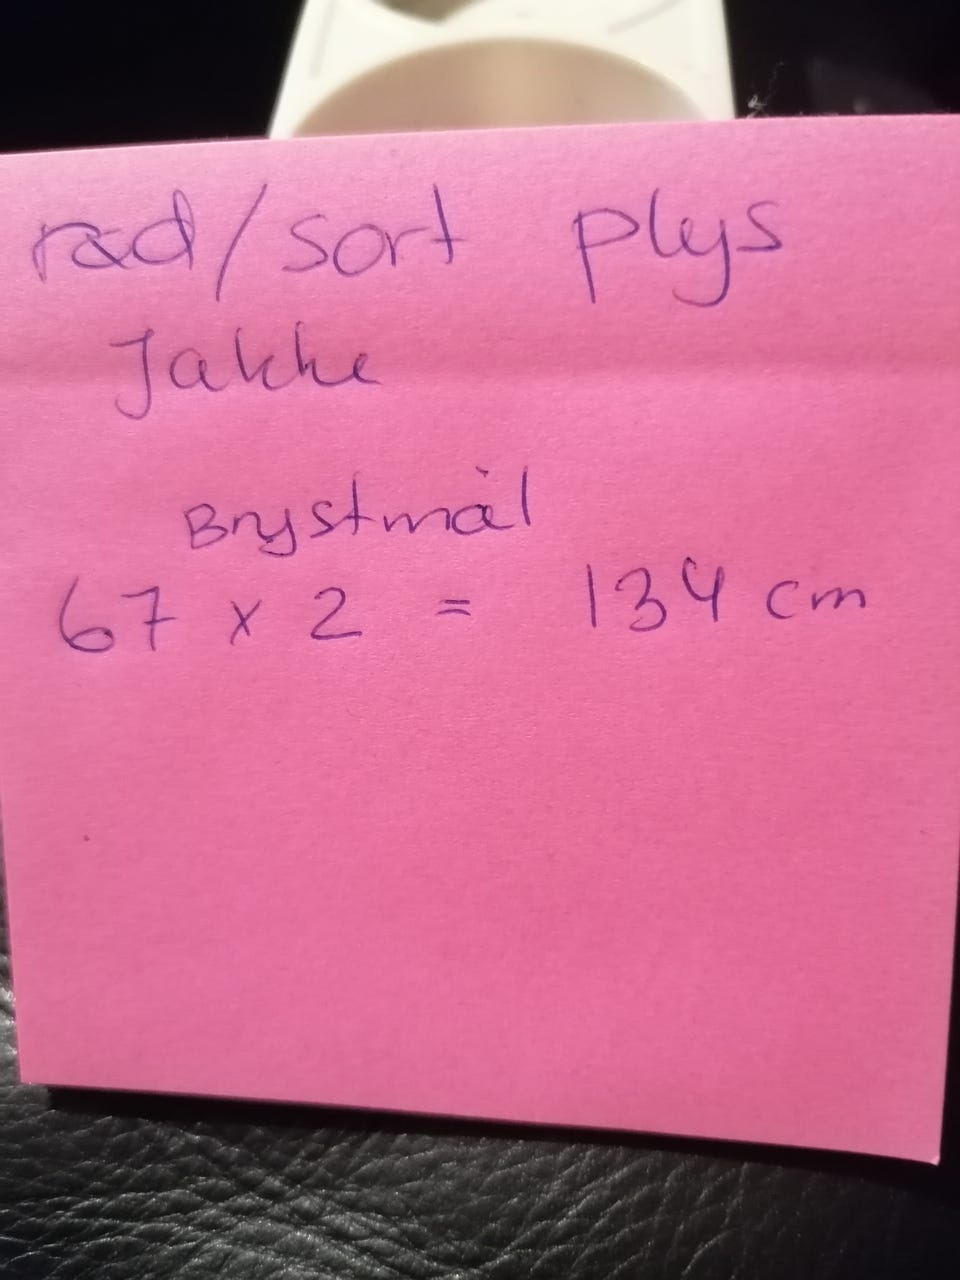 rød/sort plys
Jakke
Brystmål
67 x 2 = 134 cm